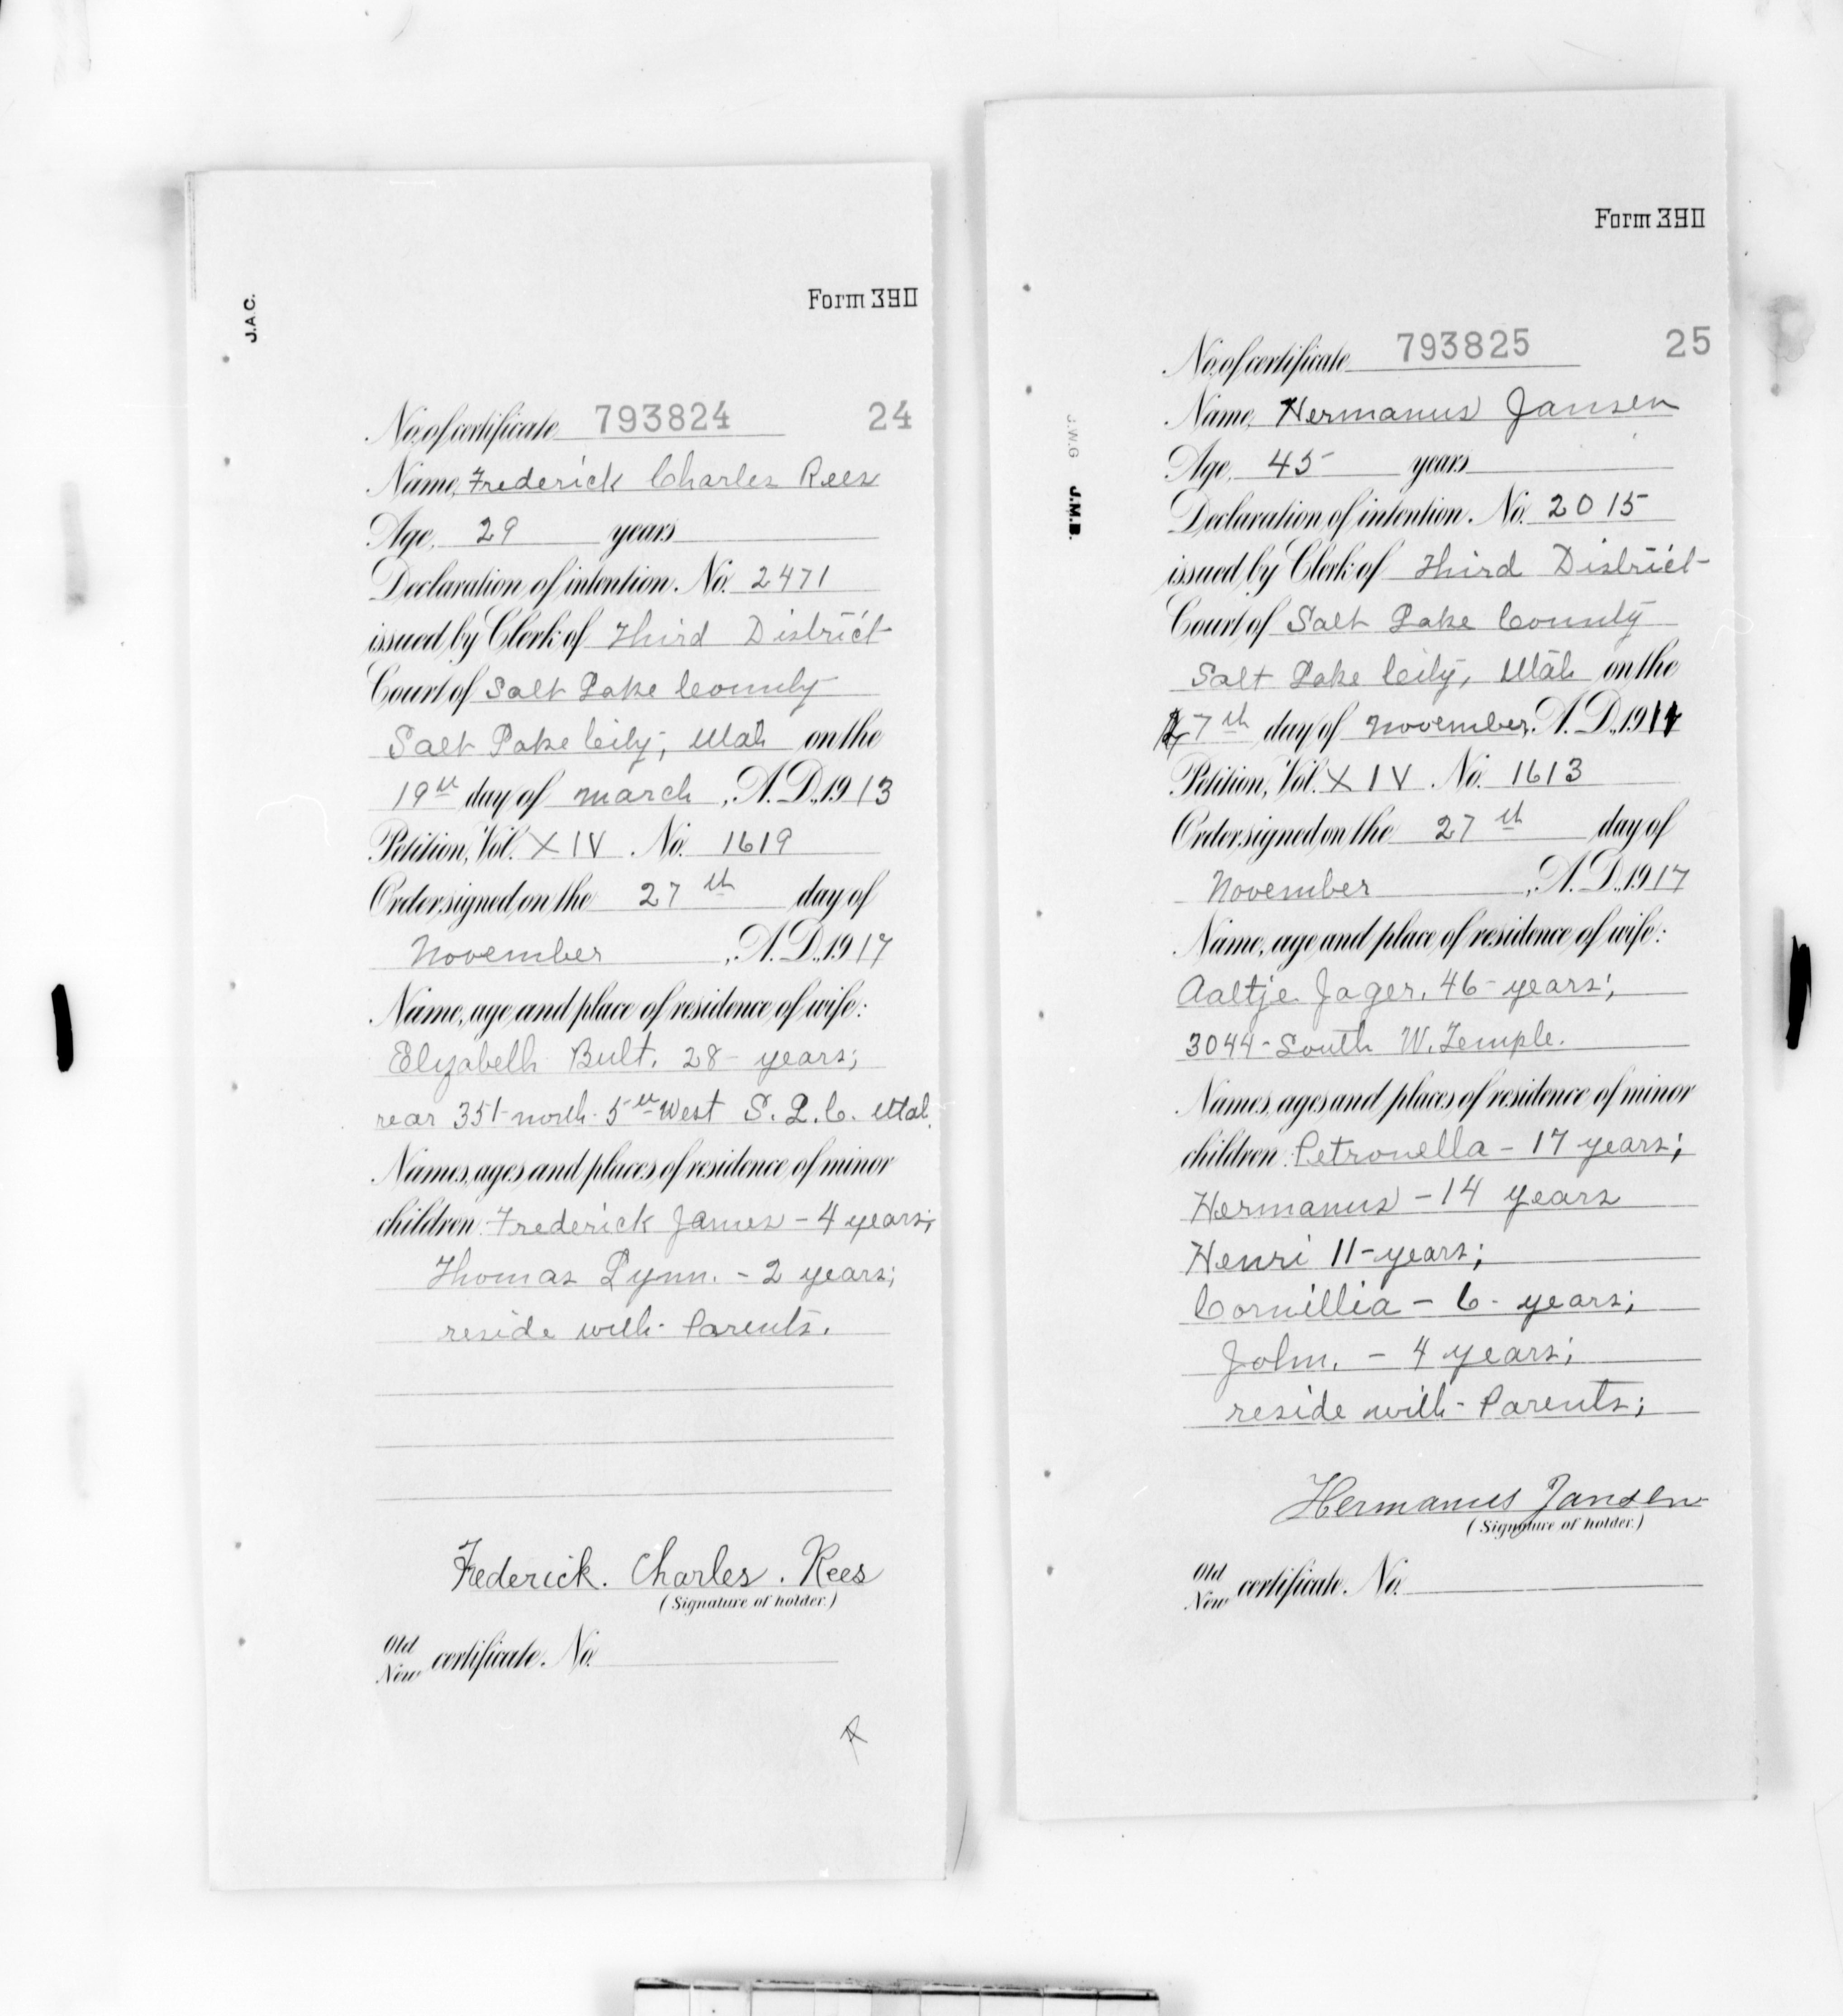 J.A.C.
Form 390
No. of certificate 793824 24
Name, Frederick Charles Rees
Age, 29 years
Declaration of intention. No. 2471
issued by Clerk of Third District
Court of Salt Lake County
Salt Lake City, Utah on the
19th day of March, A.D., 1913
Petition, Vol. XIV. No. 1619
Order signed on the 27th day of
November, A.D., 1917
Name, age and place of residence of wife:
Elizabeth Bult. 28 - years;
rear 351 - north - 5th West S. L. C. Utah.
Names, ages and places of residence of minor
children: Frederick James - 4 years;
Thomas Lynn. - 2 years;
reside with - Parents.
Frederick. Charles. Rees
(Signature of holder.)
Old
New certificate. No.
Form 390
J.W.G J.M.B.
No. of certificate 793825 25
Name, Hermanus Jansen
Age, 45 years
Declaration of intention. No. 2015
issued by Clerk of Third District
Court of Salt Lake County
Salt Lake City, Utah on the
7th day of November, A.D., 1911
Petition, Vol. XIV. No. 1613
Order signed on the 27th day of
November, A.D., 1917
Name, age and place of residence of wife:
Aaltje Jager, 46 - years;
3044 - South W. Temple.
Names, ages and places of residence of minor
children: Petronella - 17 years;
Hermanus - 14 years
Henri 11 - years;
Cornillia - 6 - years;
John. - 4 years;
reside with - Parents;
Hermanus Jansen
(Signature of holder.)
Old
New certificate. No.